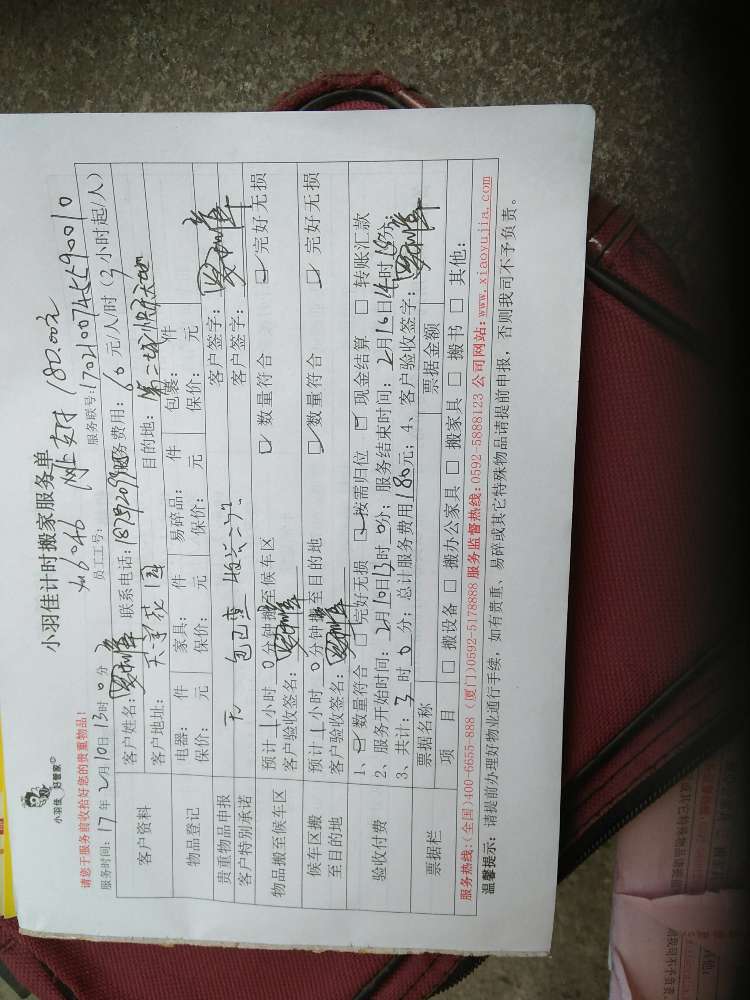 小羽佳 好管家
小羽佳计时搬家服务单
网上支付 180.00元
请您于服务前收拾好您的贵重物品!
员工工号: 服务联号:
服务时间: 17年2月10日13时0分
客户资料 客户姓名: 联系电话: 服务费用: 60元/人/时(3小时起/人)
客户地址: 天宝花园 目的地:
物品登记 电器: 件 家具: 件 易碎品: 件 包裹: 件
保价: 元 保价: 元 保价: 元 保价: 元
贵重物品申报 无 客户签字:
客户特别承诺 客户签字:
物品搬至候车区 预计1小时0分钟搬至候车区 数量符合 完好无损
客户验收签名:
候车区搬至目的地 预计1小时0分钟搬至目的地 数量符合 完好无损
客户验收签名:
验收付费 1、数量符合 完好无损 按需归位 现金结算 转账汇款
2、服务开始时间: 2月10日13时0分; 服务结束时间: 2月10日
3、共计: 3时0分; 总计服务费用180元; 4、客户验收签字:
票据栏 票据名称 票据金额
项目 □搬设备 □搬办公家具 □搬家具 □搬书 □其他:
服务热线:(全国)400-6655-888 (厦门)0592-5178888 服务监督热线:0592-5888123 公司网站:www.xiaoyujia.com
温馨提示: 请提前办理好物业通行手续, 如有贵重、易碎或其它特殊物品请提前申报, 否则我司不予负责。